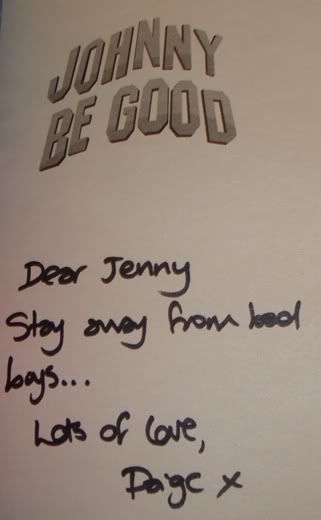 JOHNNY
BE GOOD
Dear Jenny
Stay away from bad
boys...
Lots of love,
Paige x